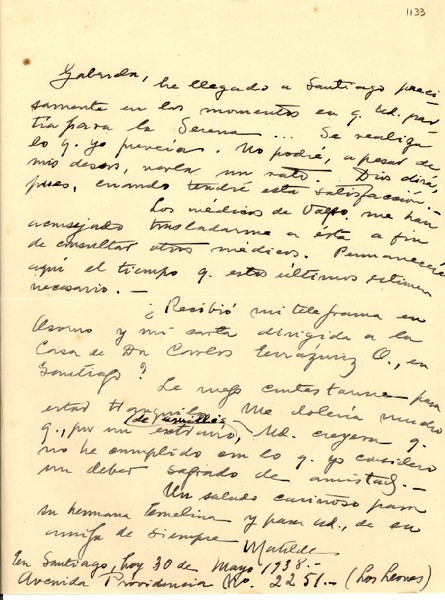 1133
Gabriela, he llegado a Santiago preci-
samente en los momentos en q. Ud. par-
tía para la Serena... Se realiza
lo q. yo preveía. No podré, a pesar de
mis deseos, verla un rato. Dios dirá
pues, cuando tendré esta satisfacción.
Los médicos de Valpo, me han
aconsejado trasladarme a ésta a fin
de consultar otros médicos. Permaneceré
aquí el tiempo q. estos últimos estimen
necesario. —
¿Recibió mi telegrama en
Osorno y mi carta dirigida a la
Casa de Dn Carlos Errázuriz O., en
Santiago?
Le ruego contestarme para
estar tranquila. Me dolería mucho
q., por un extravío, (de aquéllas) Ud. creyera q.
no he cumplido con lo q. yo considero
un deber sagrado de amistad. —
Un saludo cariñoso para
su hermana Emelina y para Ud., de su
amiga de siempre
Matilde
En Santiago, hoy 30 de Mayo 1938. —
Avenida Providencia No. 2251. — (Los Leones)